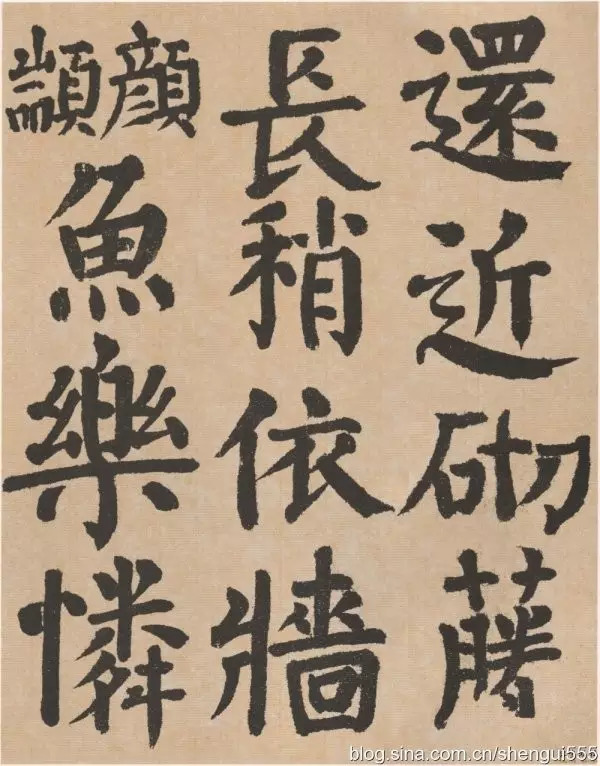 還近砌藤
長稍依牆
顏顓
魚樂憐
blog.sina.com.cn/shengui555